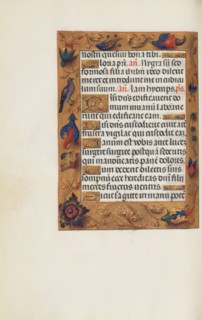 nostri quesumus bona tibi.
loua pñ. añ. Nigra sū sed
formosa filia ihrlm ideo dilexit
me rex et introduxit me in cubicu
lum suum. añ. Iam hyems. ps.
Nisi dñs edificauerit do
mum in uanū laborauer
runt qui edificant eam.
Nisi dñs custodierit ciuitatē
frustra vigilat qui custodit eā.
Vanum est vobis ante lucē
surgere surgite postquā sederitis
qui manducatis panē doloris.
Cum dederit dilectis suis
somnū ecce hereditas dñi filij
merces fructus ventris.
Sicut sagitte in manu potē